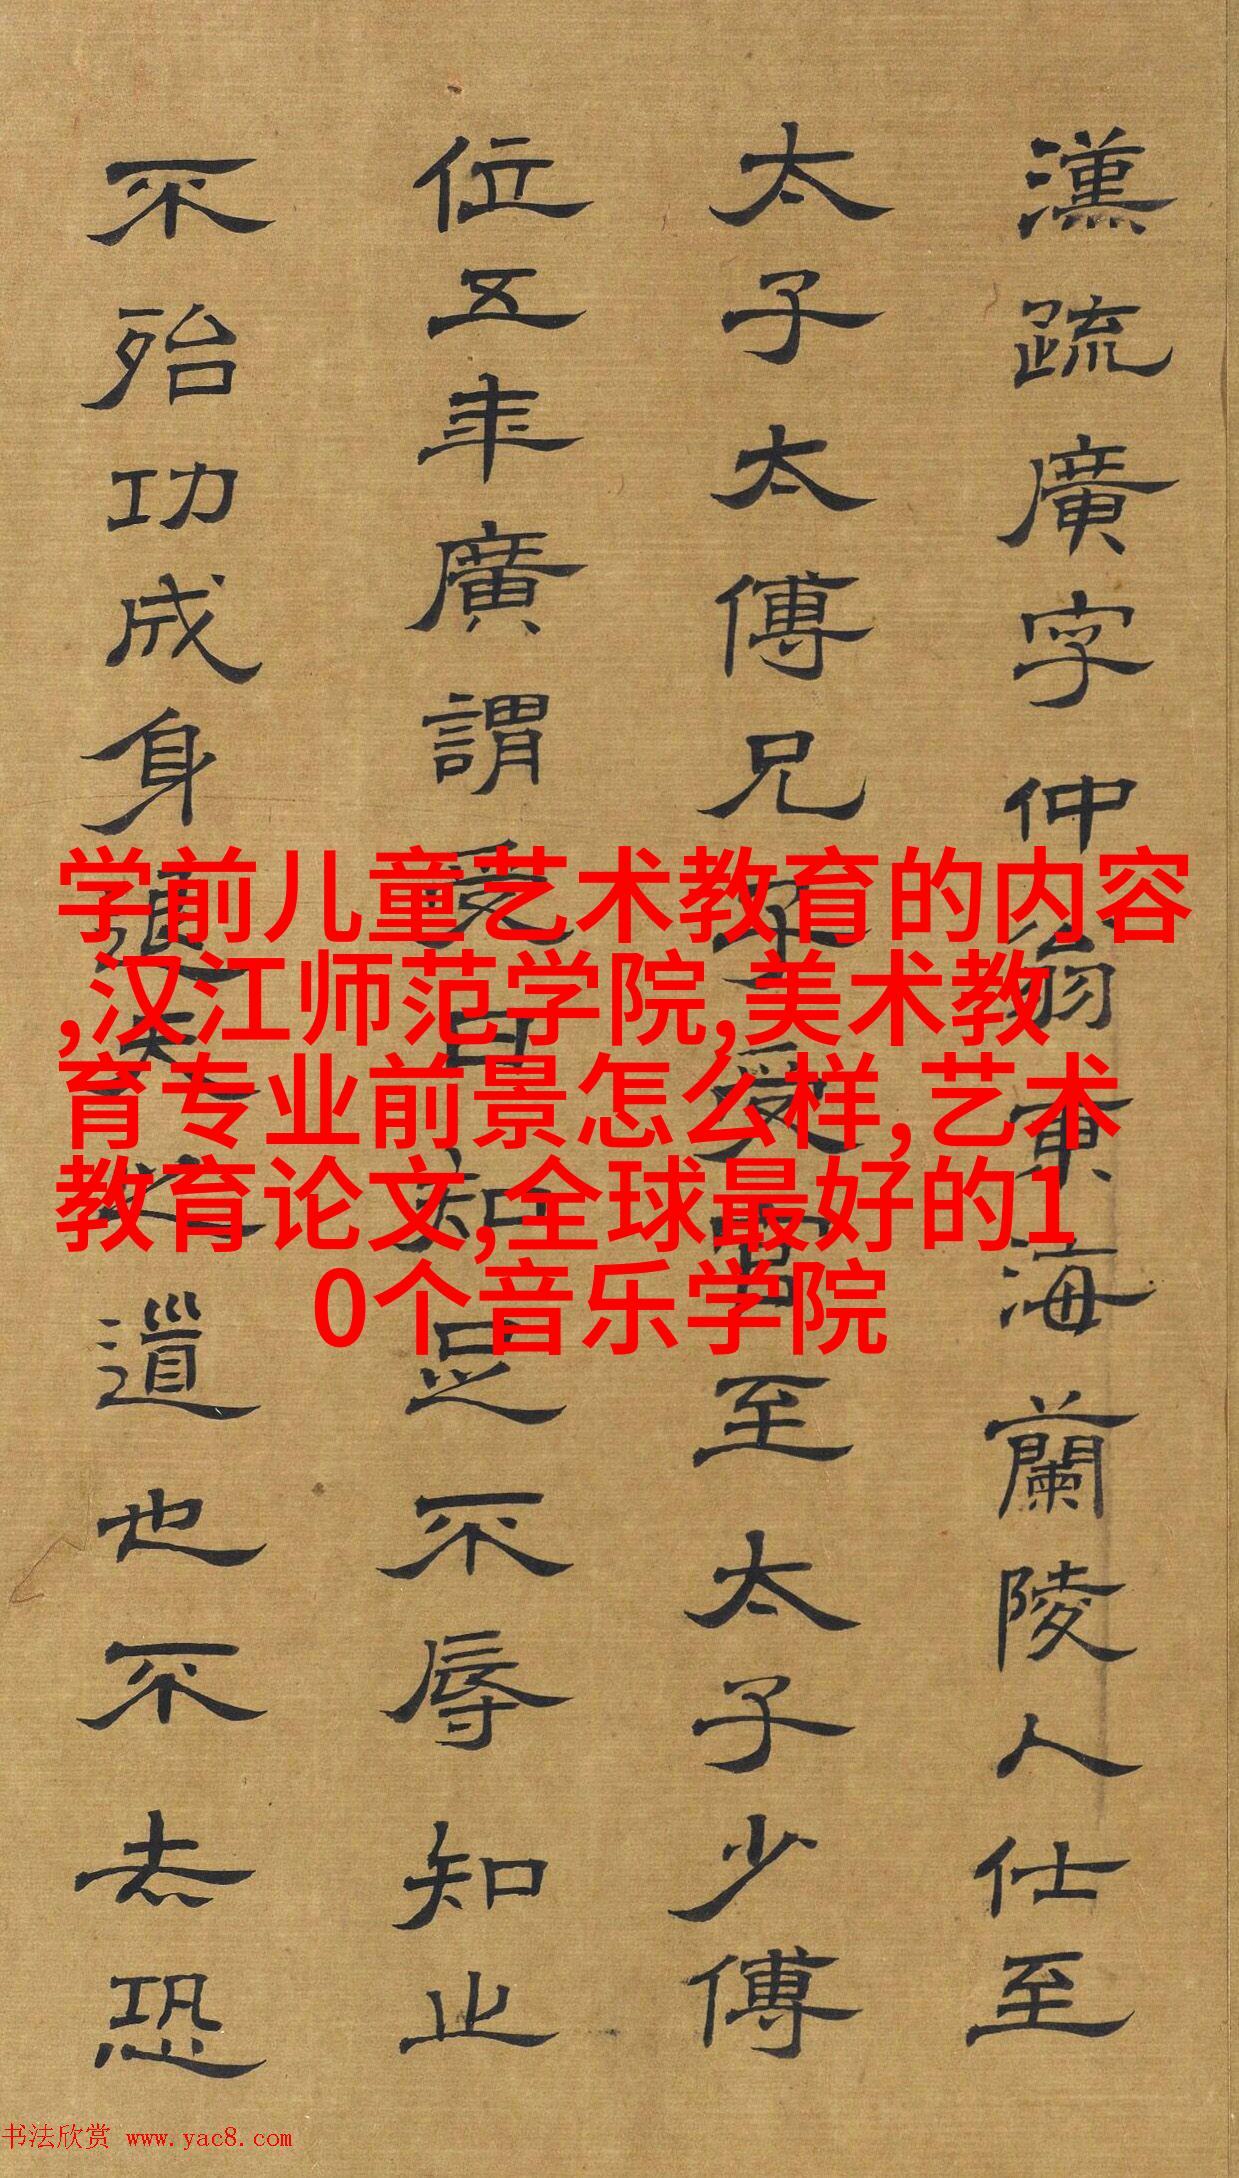 漢疏廣字仲翁東海蘭陵人仕至
太子太傅兄子受官至太子少傅
位五年廣謂受曰知足不辱知止
不殆功成身退天之道也不去恐
学前儿童艺术教育的内容
,汉江师范学院,美术教
育专业前景怎么样,艺术
教育论文,全球最好的1
0个音乐学院
书法欣赏 www.yac8.com